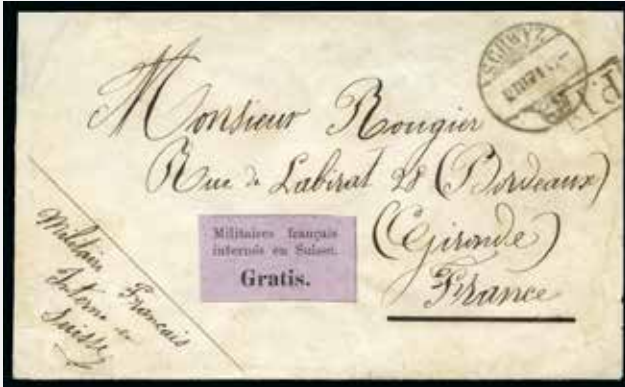 SCHWYZ
P.P.
Monsieur Rougier
Rue de Labirat 28 (Bordeaux)
(Gironde)
France
Militaires français
internés en Suisse.
Gratis.
Militaire Francais
Interné en
Suisse